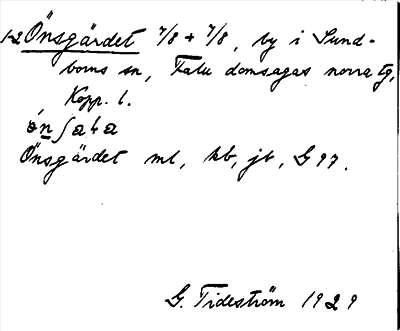 1-2 Önsgärdet 7/8 + 7/8, by i Sund-
borns sn, Falu domsagas norra tg,
Kopp. l.
Önsgärdet ml, kb, jb, G 97.
G. Tideström 1929